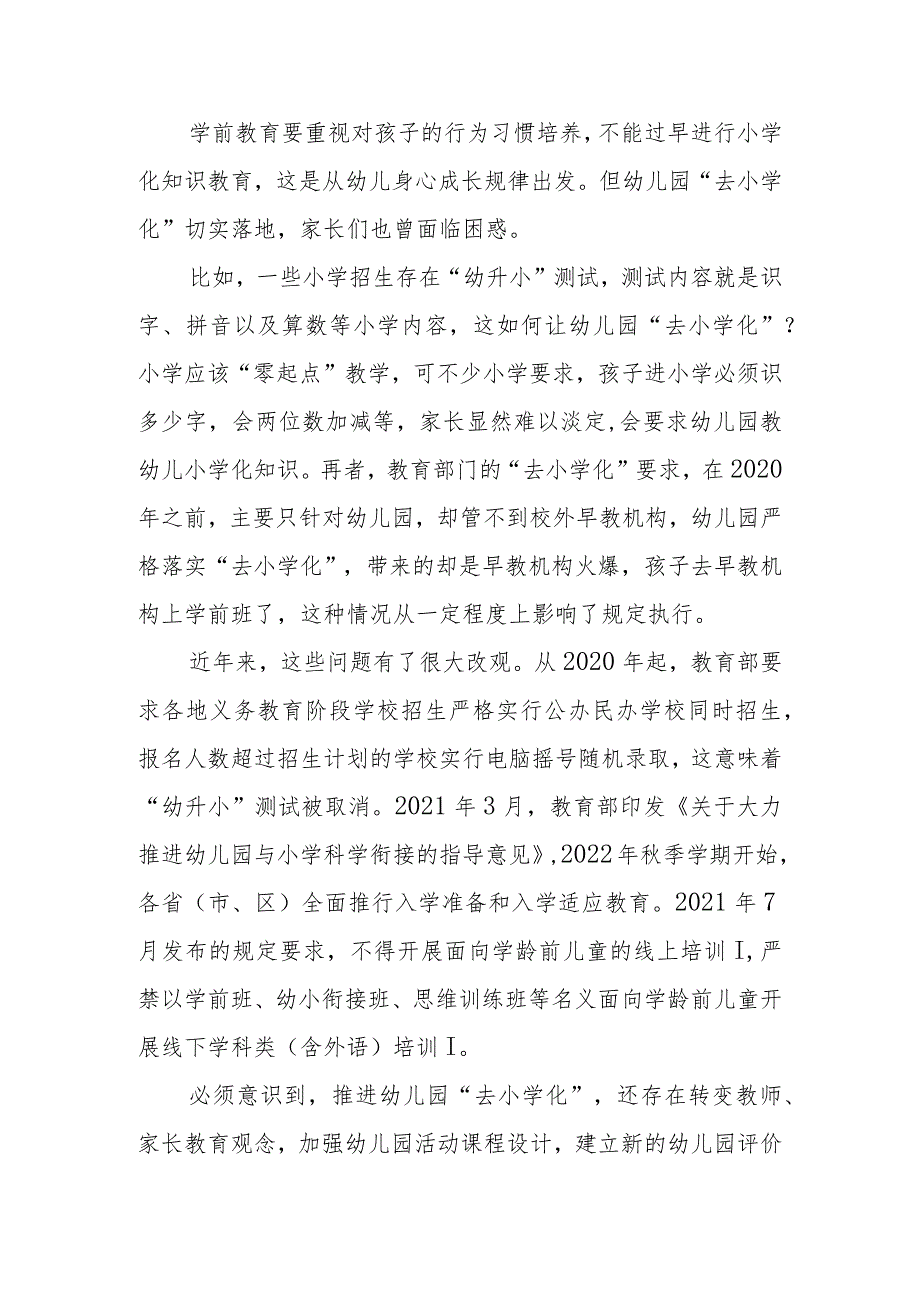 学前教育要重视对孩子的行为习惯培养,不能过早进行小学
化知识教育，这是从幼儿身心成长规律出发。但幼儿园“去小学
化”切实落地，家长们也曾面临困惑。
比如，一些小学招生存在“幼升小”测试，测试内容就是识
字、拼音以及算数等小学内容，这如何让幼儿园“去小学化”？
小学应该“零起点”教学，可不少小学要求，孩子进小学必须识
多少字，会两位数加减等，家长显然难以淡定,会要求幼儿园教
幼儿小学化知识。再者，教育部门的“去小学化”要求，在 2020
年之前，主要只针对幼儿园，却管不到校外早教机构，幼儿园严
格落实“去小学化”，带来的却是早教机构火爆，孩子去早教机
构上学前班了，这种情况从一定程度上影响了规定执行。
近年来，这些问题有了很大改观。从 2020 年起，教育部要
求各地义务教育阶段学校招生严格实行公办民办学校同时招生，
报名人数超过招生计划的学校实行电脑摇号随机录取，这意味着
“幼升小”测试被取消。2021 年 3 月，教育部印发《关于大力
推进幼儿园与小学科学衔接的指导意见》,2022 年秋季学期开始，
各省（市、区）全面推行入学准备和入学适应教育。2021 年 7
月发布的规定要求，不得开展面向学龄前儿童的线上培训 I,严
禁以学前班、幼小衔接班、思维训练班等名义面向学龄前儿童开
展线下学科类（含外语）培训 I。
必须意识到，推进幼儿园“去小学化”，还存在转变教师、
家长教育观念，加强幼儿园活动课程设计，建立新的幼儿园评价